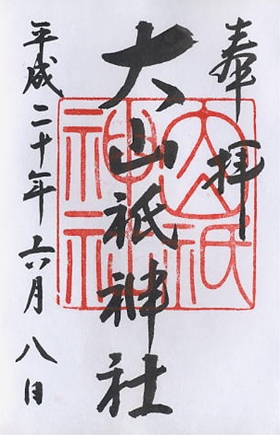 奉拝
大山祇神社
平成二十年六月八日
大山祇
神社